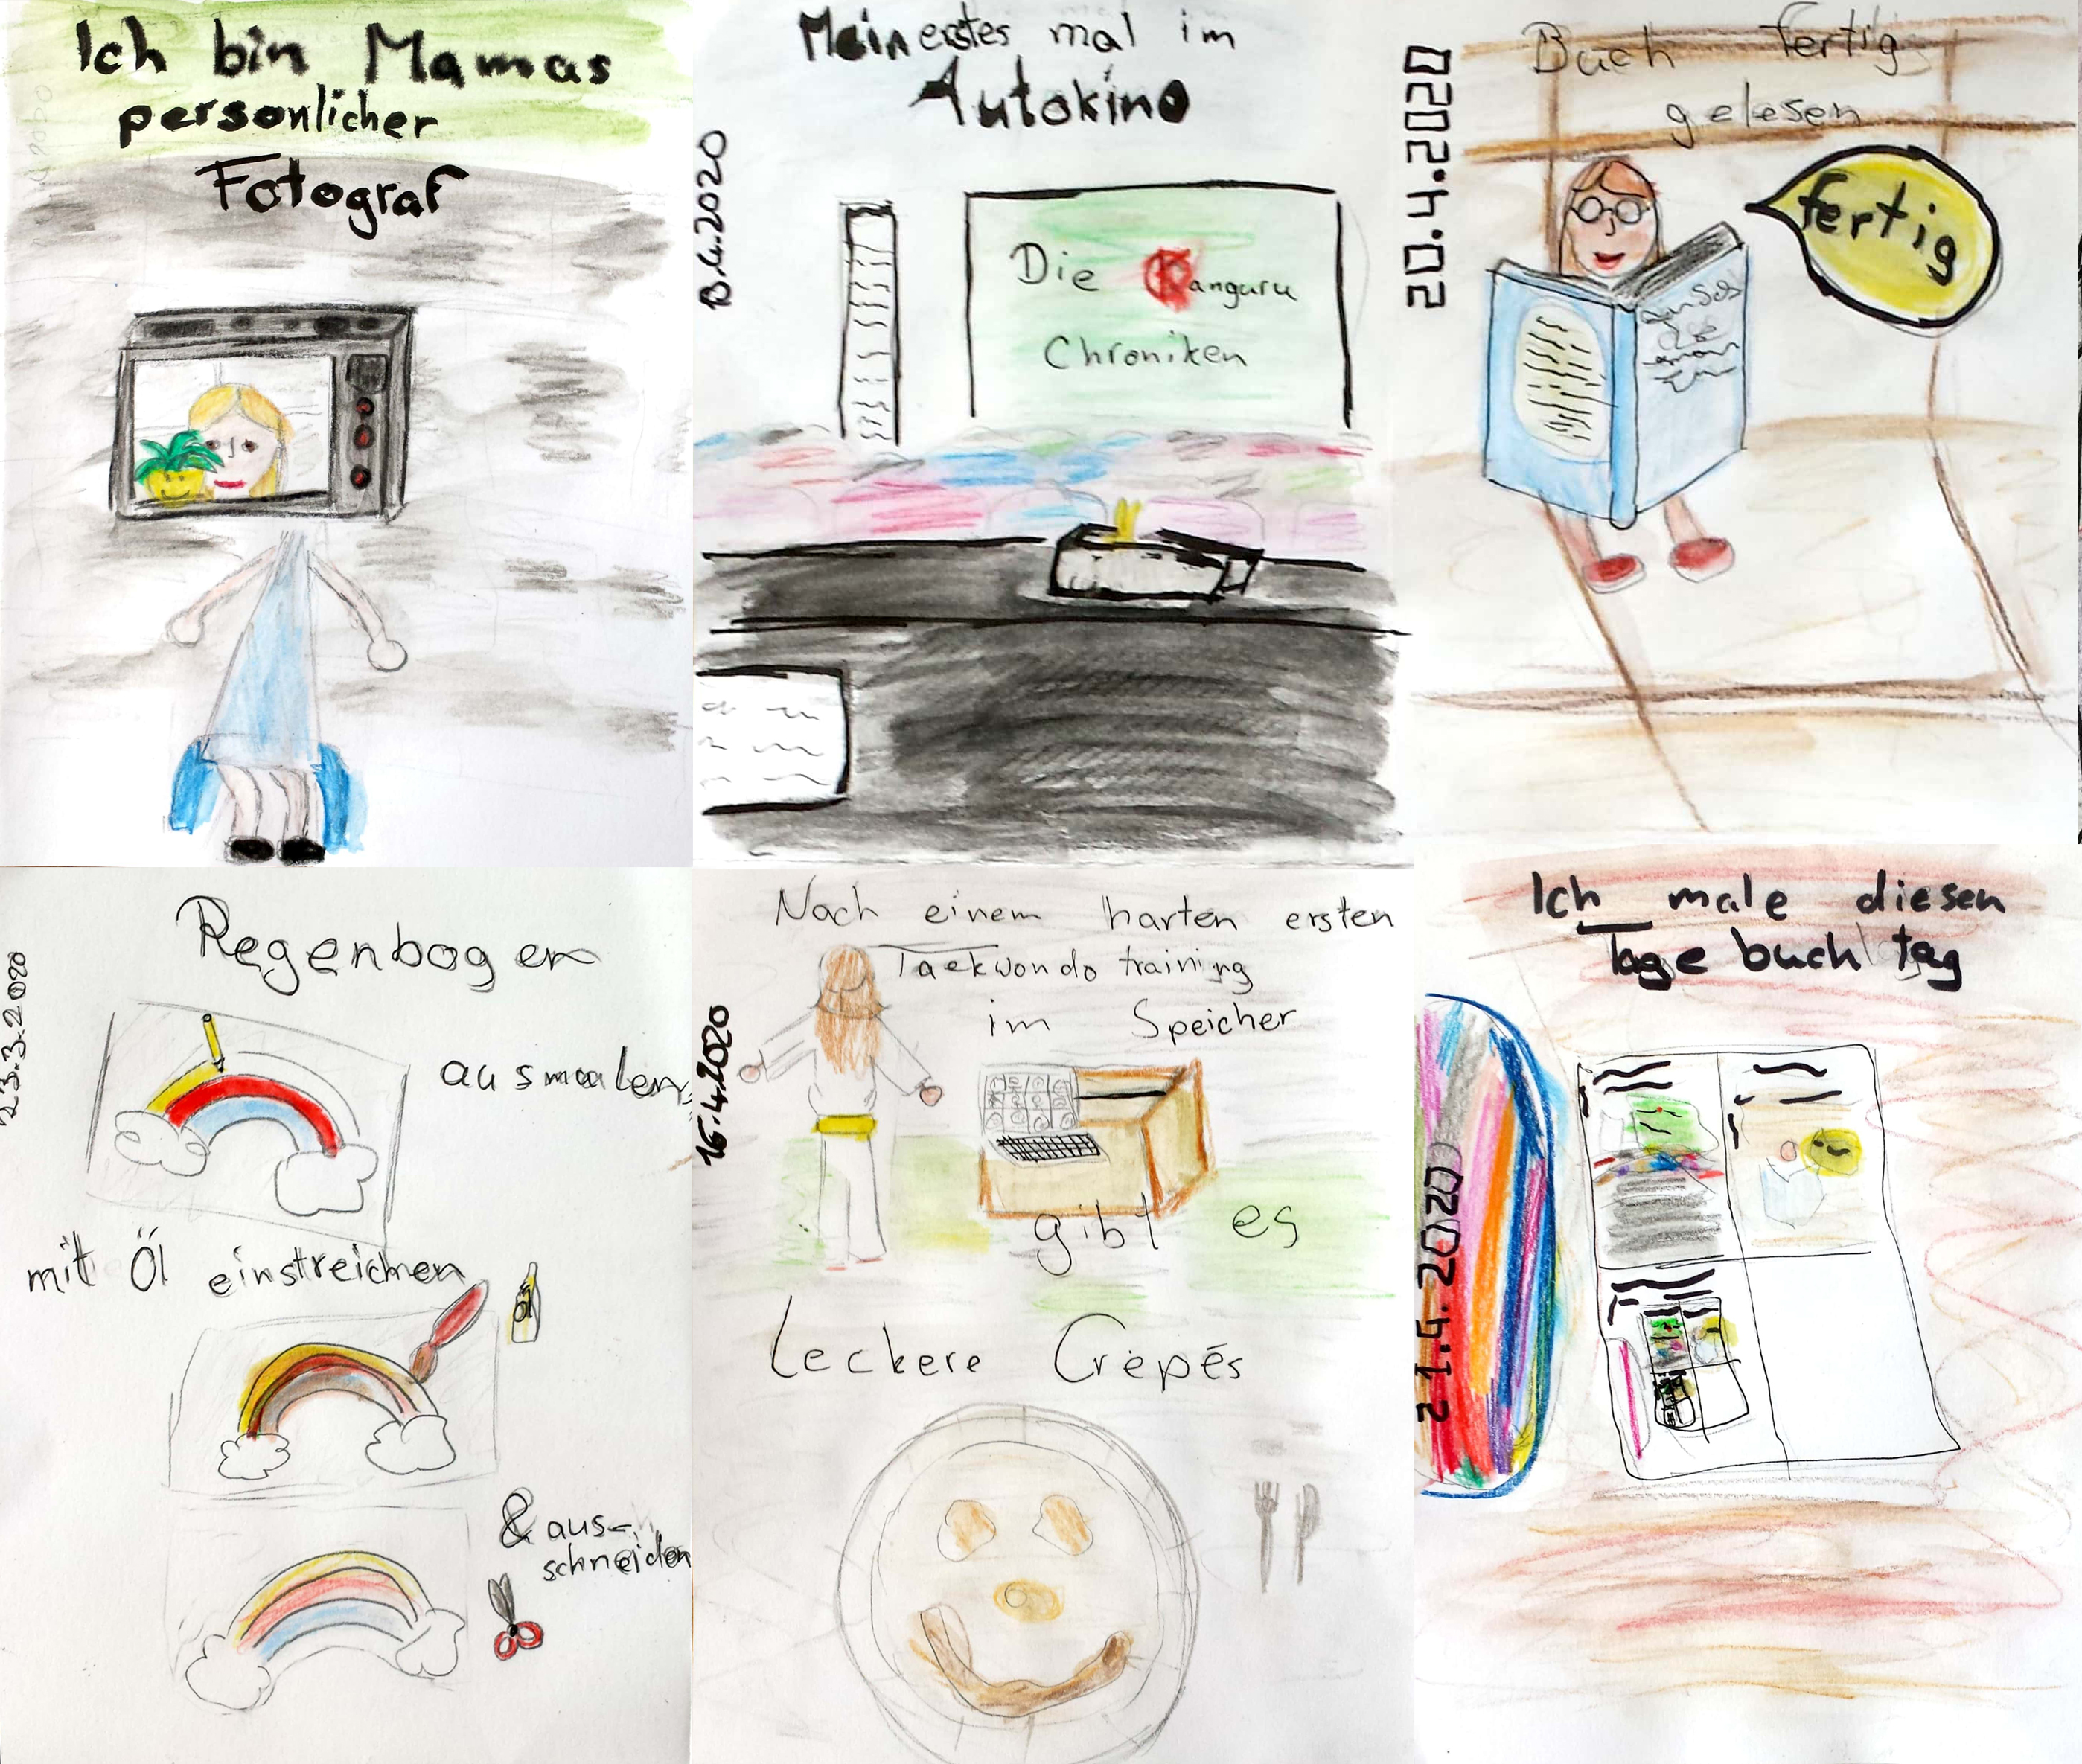 Ich bin Mamas
personlicher
Fotograf
Mein erstes mal im
Autokino
Die Kanguru
Chroniken
20.4.2020
Buch fertig
gelesen
fertig
23.3.2020
Regenbogen
ausmalen
mit Öl einstreichen
Öl
& aus-
schneiden
16.4.2020
Nach einem harten ersten
Taekwondo training
im Speicher
gibt es
Leckere Crêpés
21.4.2020
Ich male diesen
Tage buch tag